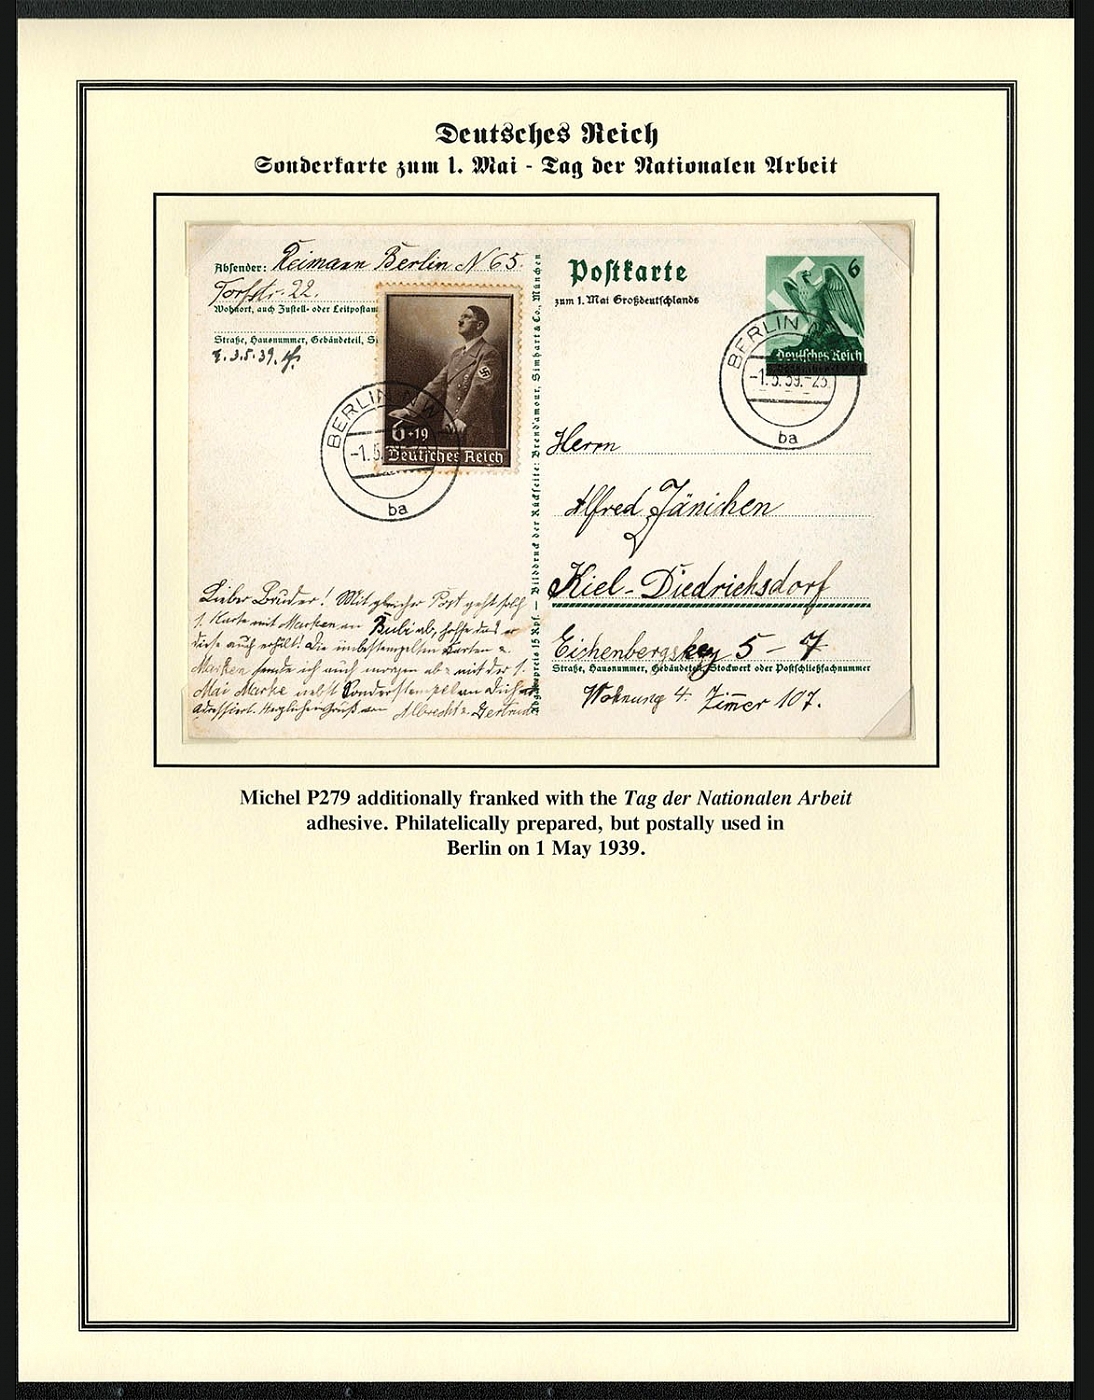 Deutsches Reich
Sonderkarte zum 1. Mai - Tag der Nationalen Arbeit
Absender: Reimann Berlin N 65.
Torfstr. 22.
Wohnort, auch Zustell- oder Leitpostam
Straße, Hausnummer, Gebäudeteil, S
3.5.39.
6+19
Deutsches Reich
BERLIN
-1.5
ba
Lieber Bruder! Mit gleicher Post geht
1. Karte mit Marken an Bubi ab, hoffe das er
diese auch erhält! Die unbestempelten Karten u.
Marken sende ich auch morgen ab mit der 1.
Mai Marke nebst Sonderstempel an Dich
adressiert. Herzlichen Gruß von Albrecht u. Gertrud
Abgabepreis 15 Rpf. — Bilddruck der Rückseite: Brend'amour, Simhart & Co., München
Postkarte
zum 1. Mai Großdeutschlands
6
Deutsches Reich
BERLIN
-1.5.39.-23.
ba
Herrn
Alfred Jänichen
Kiel-Diedrichsdorf
Eichenbergskey 5-7
Straße, Hausnummer, Gebäudeteil, Stockwerk oder Postschließfachnummer
Wohnung 4. Zimer 107.
Michel P279 additionally franked with the Tag der Nationalen Arbeit
adhesive. Philatelically prepared, but postally used in
Berlin on 1 May 1939.